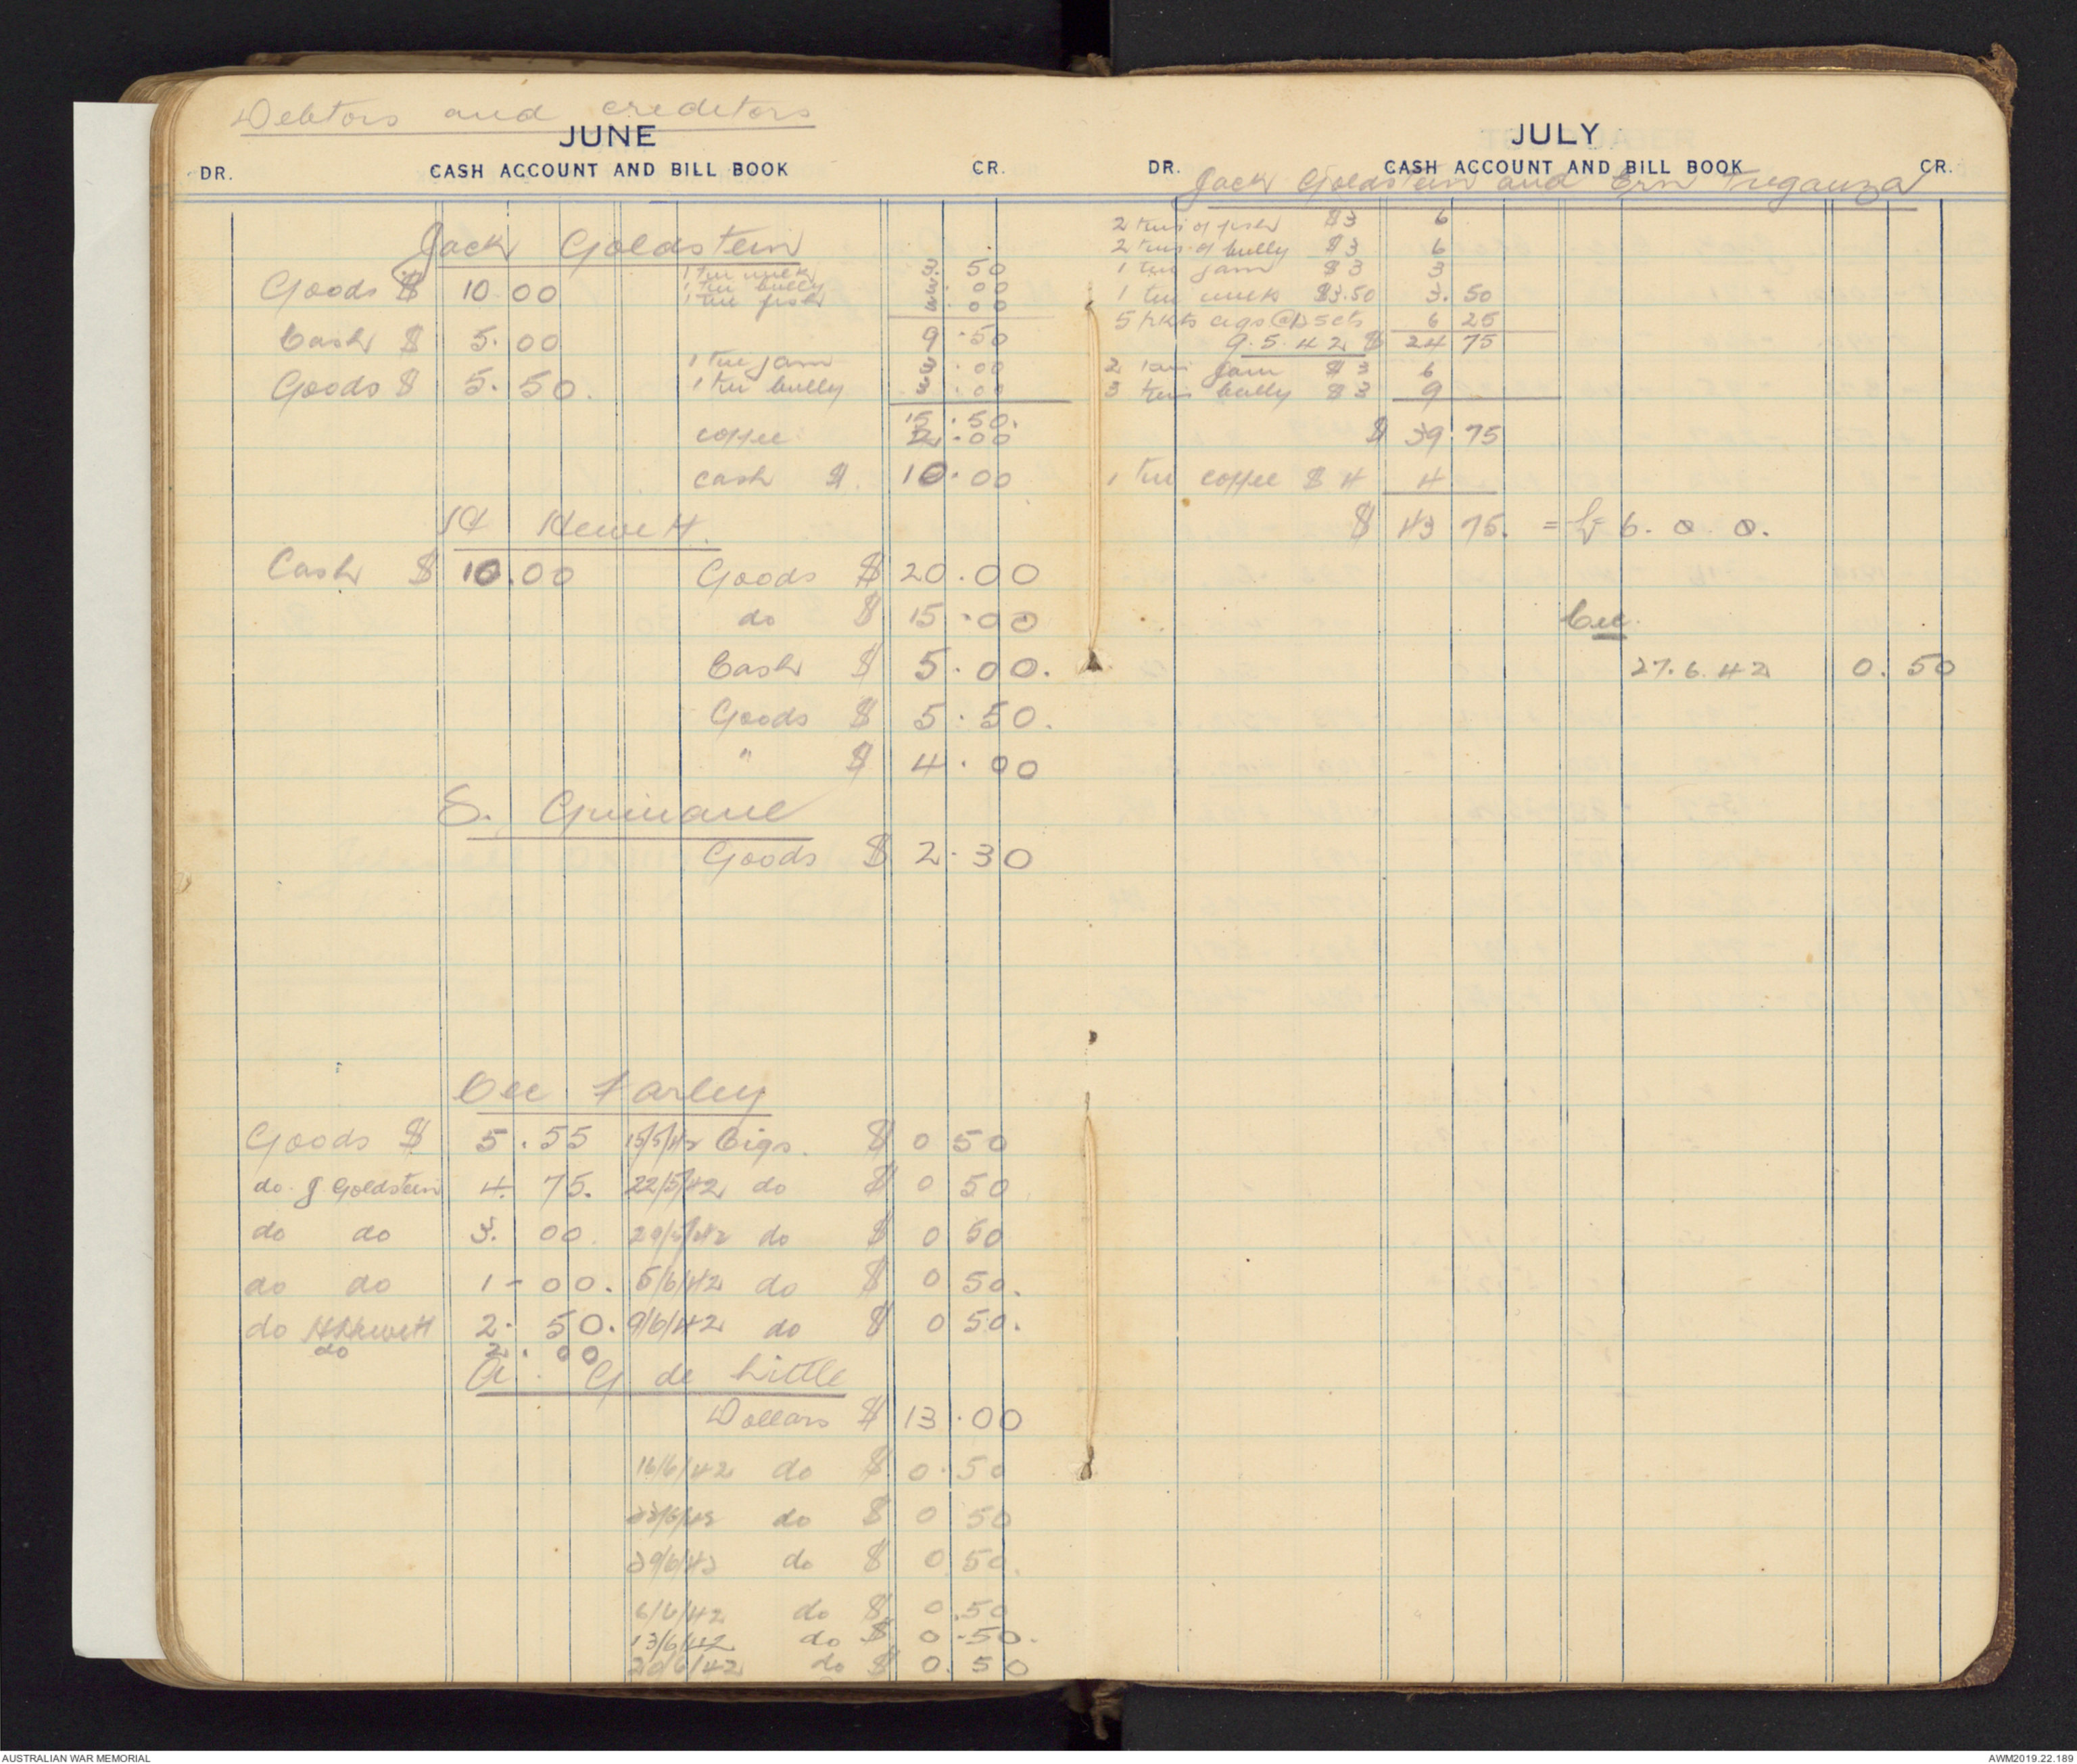 Debtors and creditors
JUNE
DR. CASH ACCOUNT AND BILL BOOK CR.
Jack Goldstein
Goods $ 10 00 1 tin milk 3. 50
1 tin bully 3. 00
1 tin fish 3. 00
Cash $ 5. 00 9 . 50
1 tin jam 3 . 00
Goods $ 5. 50. 1 tin bully 3 . 00
15 . 50.
coffee 2 . 00
cash $. 10. 00
H Hewett.
Cash $ 10.00 Goods $ 20.00
do $ 15 .00
Cash $ 5.00.
Goods $ 5.50.
" $ 4.00
S. Guinane
Goods $ 2.30
Cec. Farley
Goods $ 5.55 15/5/42 Cigs. $ 0 50
do. J Goldstein 4. 75. 22/5/42 do $ 0 50
do do 3. 00. 29/5/42 do $ 0 50
do do 1 - 00. 5/6/42 do $ 0 50.
do H Hewett 2. 50. 9/6/42 do $ 0 50.
do 2. 00
A. G de Little
Dollars $ 13.00
16/6/42 do $ 0.50
23/6/42 do $ 0 50
29/6/42 do $ 0 50.
6/6/42 do $ 0.50
13/6/42 do $ 0.50.
20/6/42 do $ 0.50
JULY
DR. CASH ACCOUNT AND BILL BOOK CR.
Jack Goldstein and Ern
2 tins of fish $3 6
2 tins of bully $3 6
1 tin jam $3 3
1 tin milk $3.50 3. 50
5 pkts cigs @ 5 cts 6 25
9.5.42 $ 24 75
2 tins jam $3 6
3 tins bully $3 9
$ 39.75
1 tin coffee $4 4
$ 43 75. = £ 6. 0. 0.
Cec.
27.6.42 0. 50
AUSTRALIAN WAR MEMORIAL
AWM2019.22.189